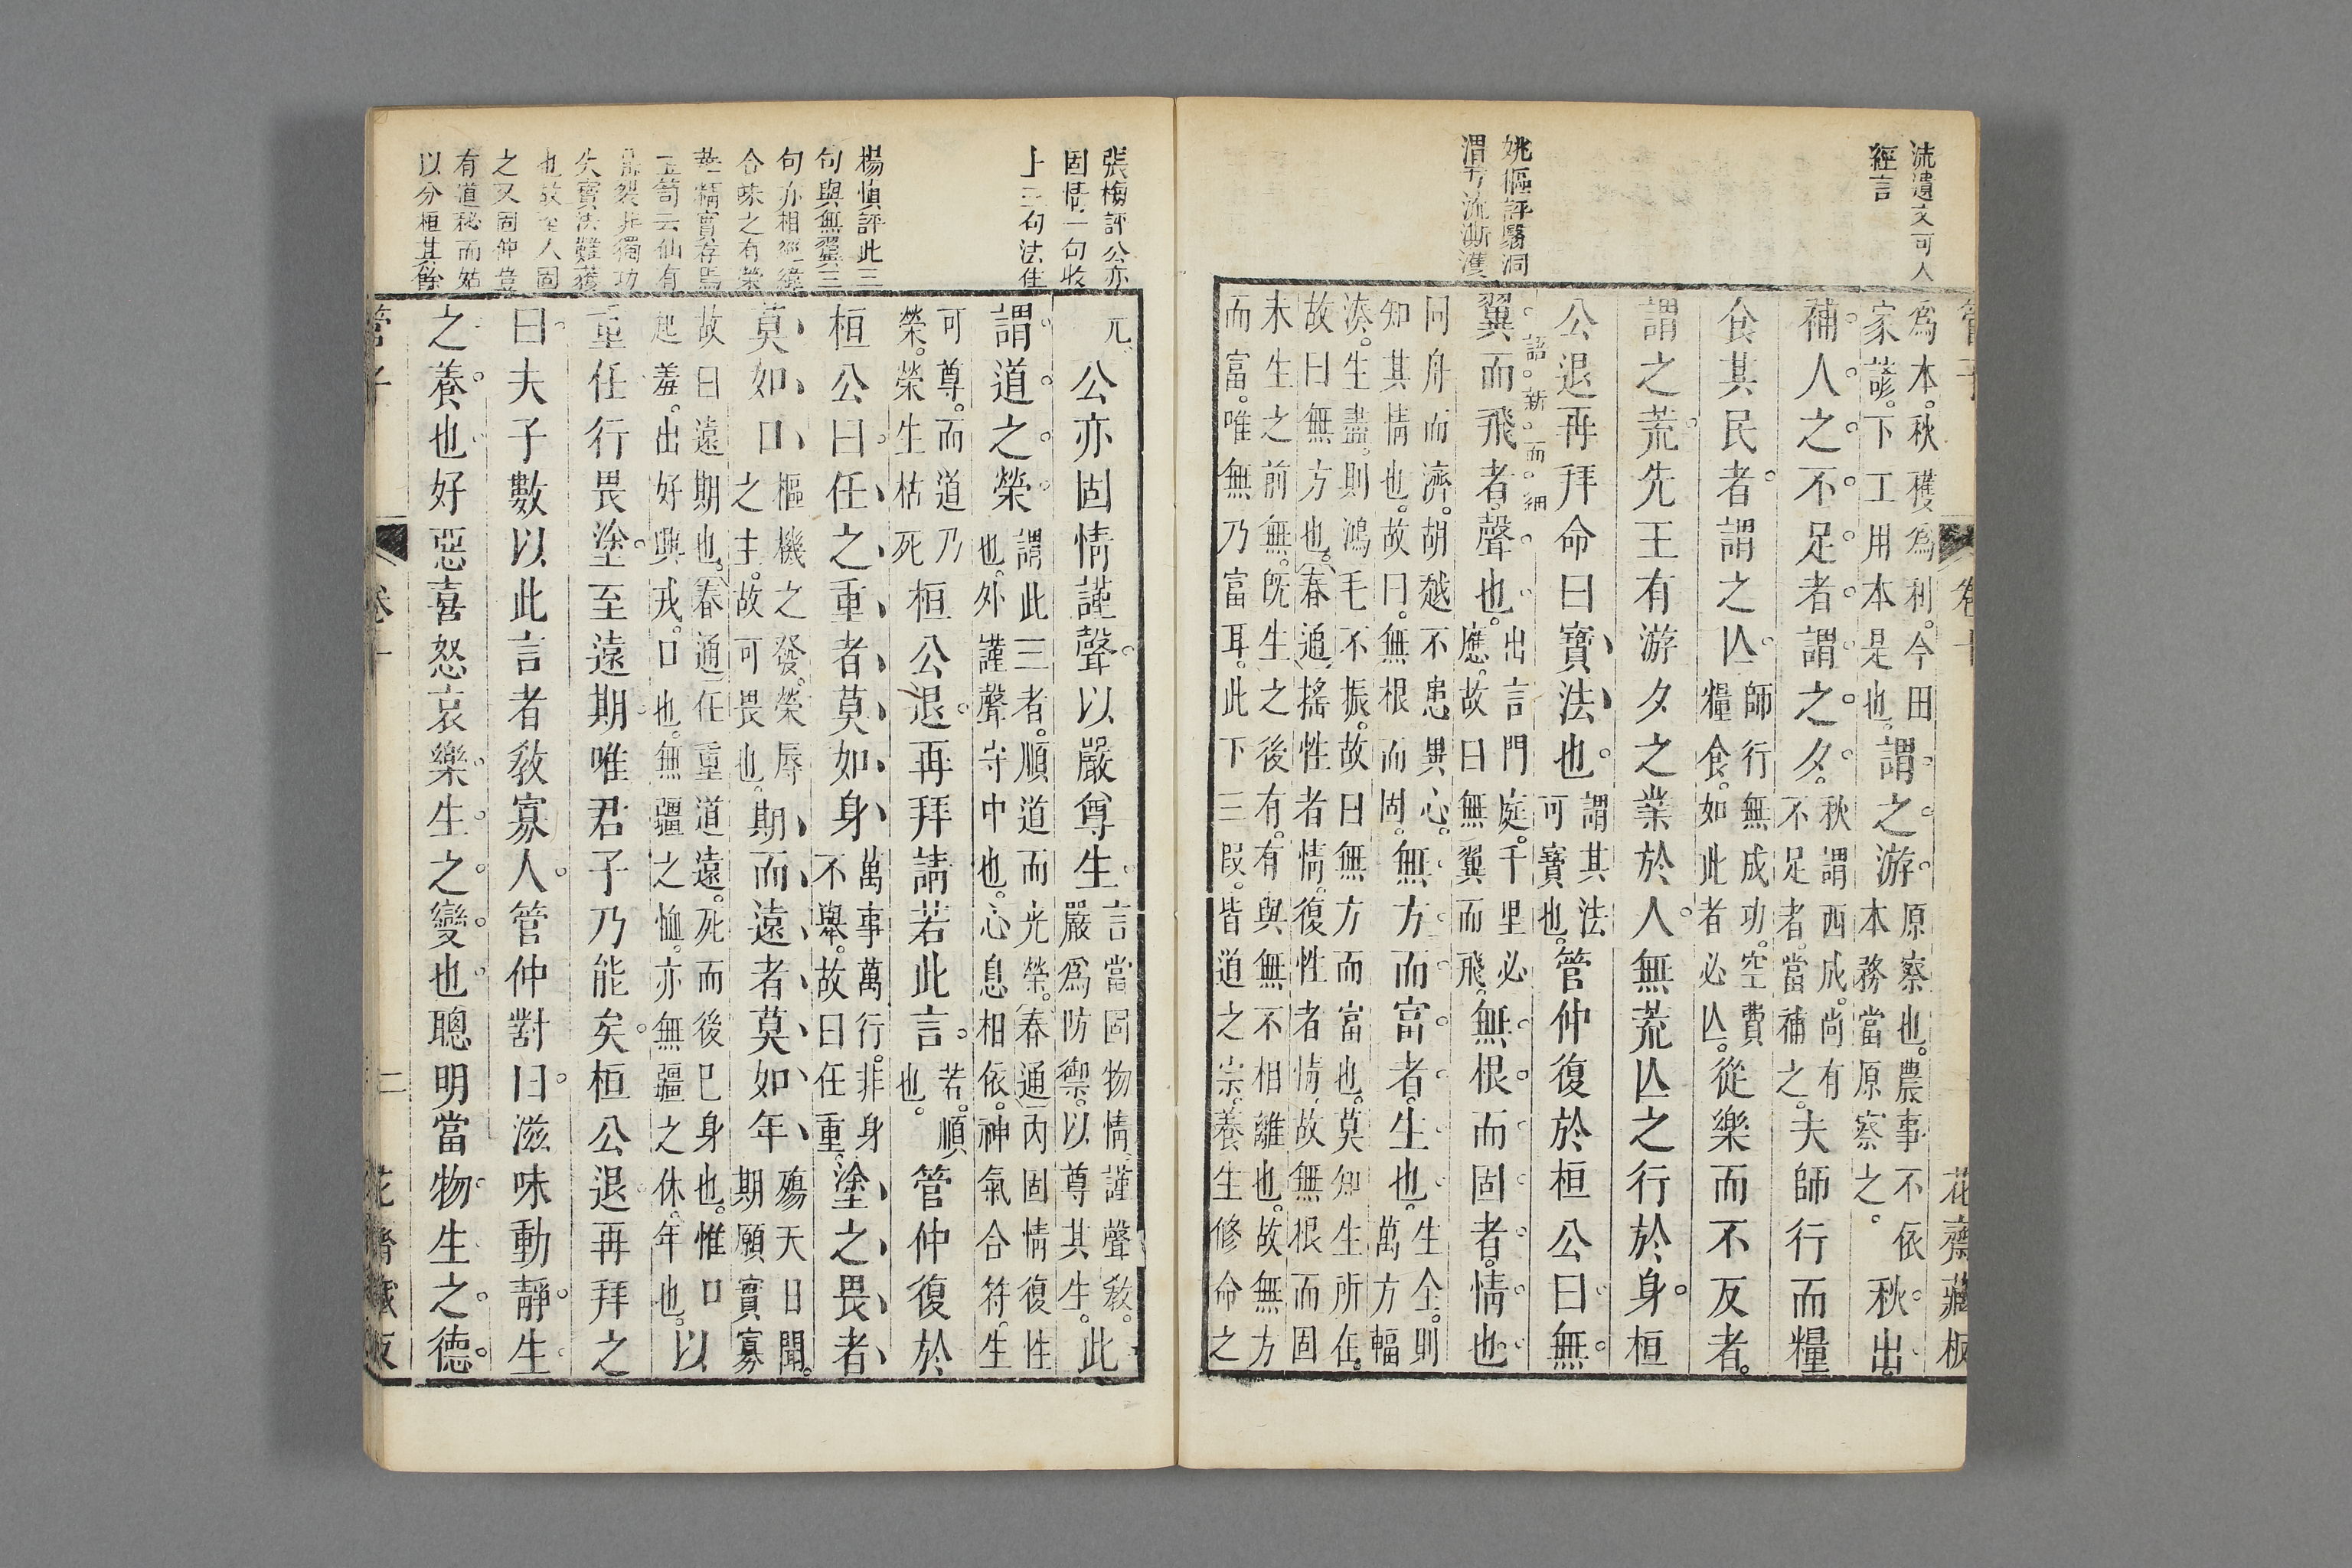 流遺文可入
經言
姚樞評翳洞
管子 卷十 花齋藏板
為本。秋穫為利。今田
家諺。下工用本是也。
謂之游
原察也。農事不依
本務當原察之。
秋出
補人之不足者謂之夕。
秋謂西成。尚有
不足者。當補之。
夫師行而糧
食其民者謂之亾
師行無成功。空費
糧食。如此者必亾。
從樂而不反者。
謂之荒先王有游夕之業於人無荒亾之行於身桓
公退再拜命曰寶法也
謂其法
可寶也。
管仲復於桓公曰無
語新而細
翼而飛者。聲也。
出言門庭。千里必
應。故曰無翼而飛。
無根而固者。情也
同舟而濟。胡越不患異心。
知其情也。故曰。無根而固。
無方而富者。生也。
生全。則
萬方輻
湊。生盡。則鴻毛不振。故曰無方而富也。莫知生所在。
故曰無方也。春通搖性者情。復性者情。故無根而固
未生之前無。旣生之後有。有與無不相離也。故無方
而富。唯無乃富耳。此下三叚。皆道之宗。養生修命之
張榜評公亦
固情二句收
上三句法佳
楊慎評此三
句與無翼三
句亦相經緯
合味之有榮
以分桓其餘
元
公亦固情謹聲以嚴尊生
言當固物情。謹聲教。
嚴為防禦。以尊其生。
此
謂道之榮
謂此三者。順道而光榮。春通內固情復性
也。外謹聲守中也。心息相依。神氣合符。生
可尊。而道乃
榮。榮生枯死
桓公退再拜請若此言。
若。順
也。
管仲復於
桓公曰任之重者莫如身
萬事萬行。非身
不舉。故曰任重。
塗之畏者
莫如口
樞機之發。榮辱
之主。故可畏也。
期而遠者莫如年
殤天日聞。
期願實寡
故曰遠期也。春通任重道遠。死而後已身也。惟口
起羞。出好興戎。口也。無疆之恤。亦無疆之休。年也。
以
重任行畏塗至遠期唯君子乃能矣桓公退再拜之
曰夫子數以此言者教寡人管仲對曰滋味動靜生
之養也好惡喜怒哀樂生之變也聰明當物生之德
管子 卷十 二 花齋藏板